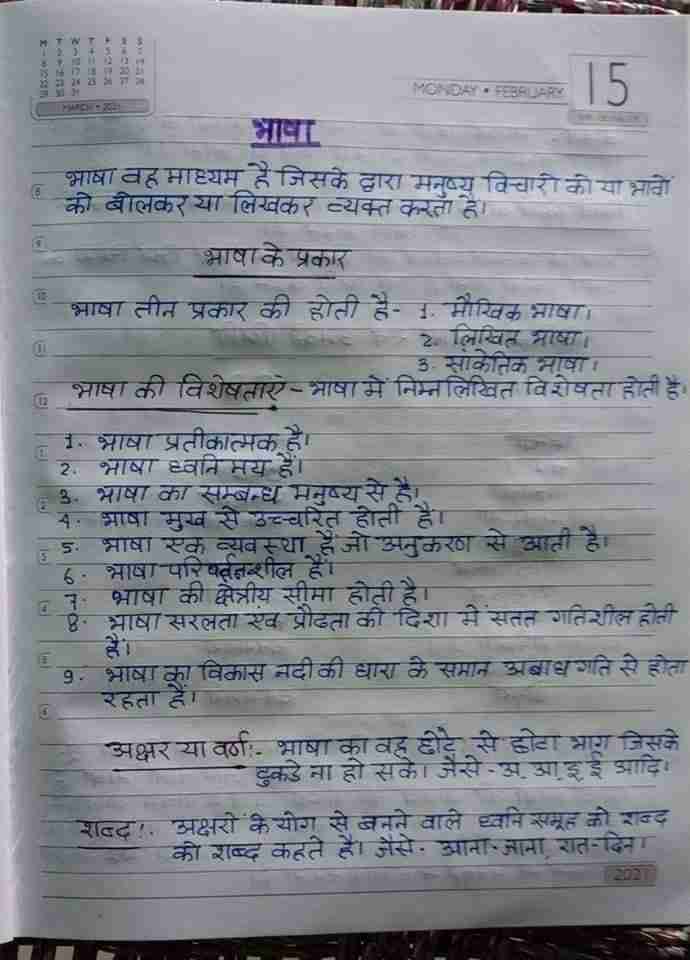 M T W T F S S
1 2 3 4 5 6 7
8 9 10 11 12 13 14
15 16 17 18 19 20 21
22 23 24 25 26 27 28
29 30 31
MARCH • 2021
MONDAY • FEBRUARY 15
भाषा
8 भाषा वह माध्यम है जिसके द्वारा मनुष्य विचारो को या भावों
को बोलकर या लिखकर व्यक्त करता है।
9
भाषा के प्रकार
10 भाषा तीन प्रकार की होती है- 1. मौखिक भाषा।
11 2. लिखित भाषा।
3. सांकेतिक भाषा।
12 भाषा की विशेषताएं - भाषा में निम्नलिखित विशेषता होती है।
1 1. भाषा प्रतीकात्मक है।
2. भाषा ध्वनि मय है।
2 3. भाषा का सम्बन्ध मनुष्य से है।
4. भाषा मुख से उच्चरित होती है।
3 5. भाषा एक व्यवस्था है जो अनुकरण से आती है।
6. भाषा परिवर्तनशील है।
4 7. भाषा की क्षेत्रीय सीमा होती है।
8. भाषा सरलता एंव प्रौढता की दिशा में सतत गतिशील होती
5 है।
9. भाषा का विकास नदी की धारा के समान अबाध गति से होता
6 रहता है।
अक्षर या वर्ण:- भाषा का वह छोटे से छोटा भाग जिसके
टुकडे ना हो सके। जैसे - अ, आ, इ, ई आदि।
शब्द:- अक्षरो के योग से बनने वाले ध्वनि समूह को शब्द
को शब्द कहते है। जैसे- आना-जाना, रात-दिन।
2021